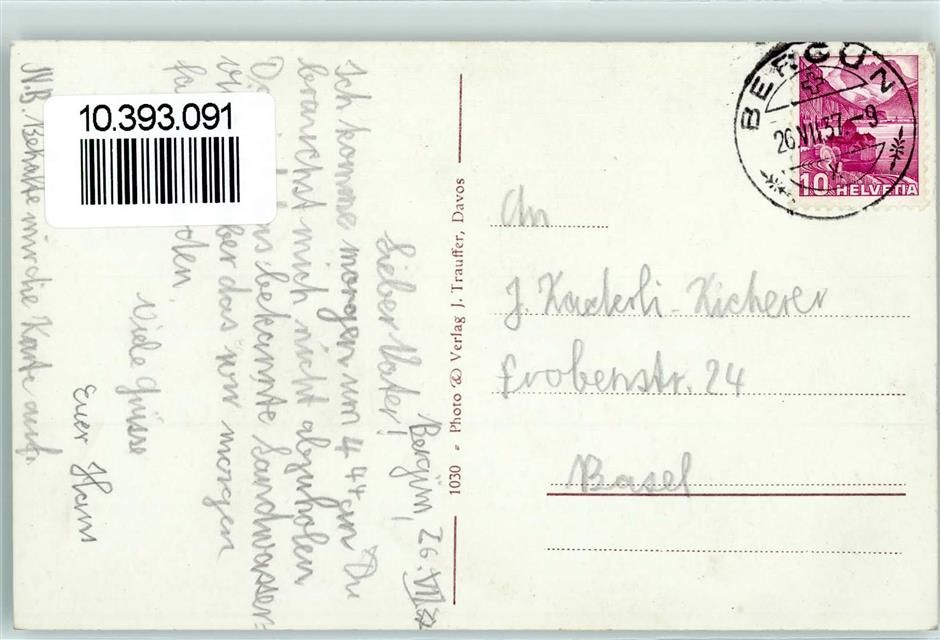 10.393.091
Bergün, 26. VII 37
Lieber Vater!
Ich komme morgen um 4 44 an Du
brauchst mich nicht abzuholen
bekannte Landwasser-
das wir morgen
Viele Grüsse
Euer Hans
N.B. Behalte mir die Karte auf.
1030 - Photo & Verlag J. Trauffer, Davos
BERGÜN
26.VII.37-9
10 HELVETIA
An
J. Kaderli-Kicherer
Frobenstr. 24
Basel